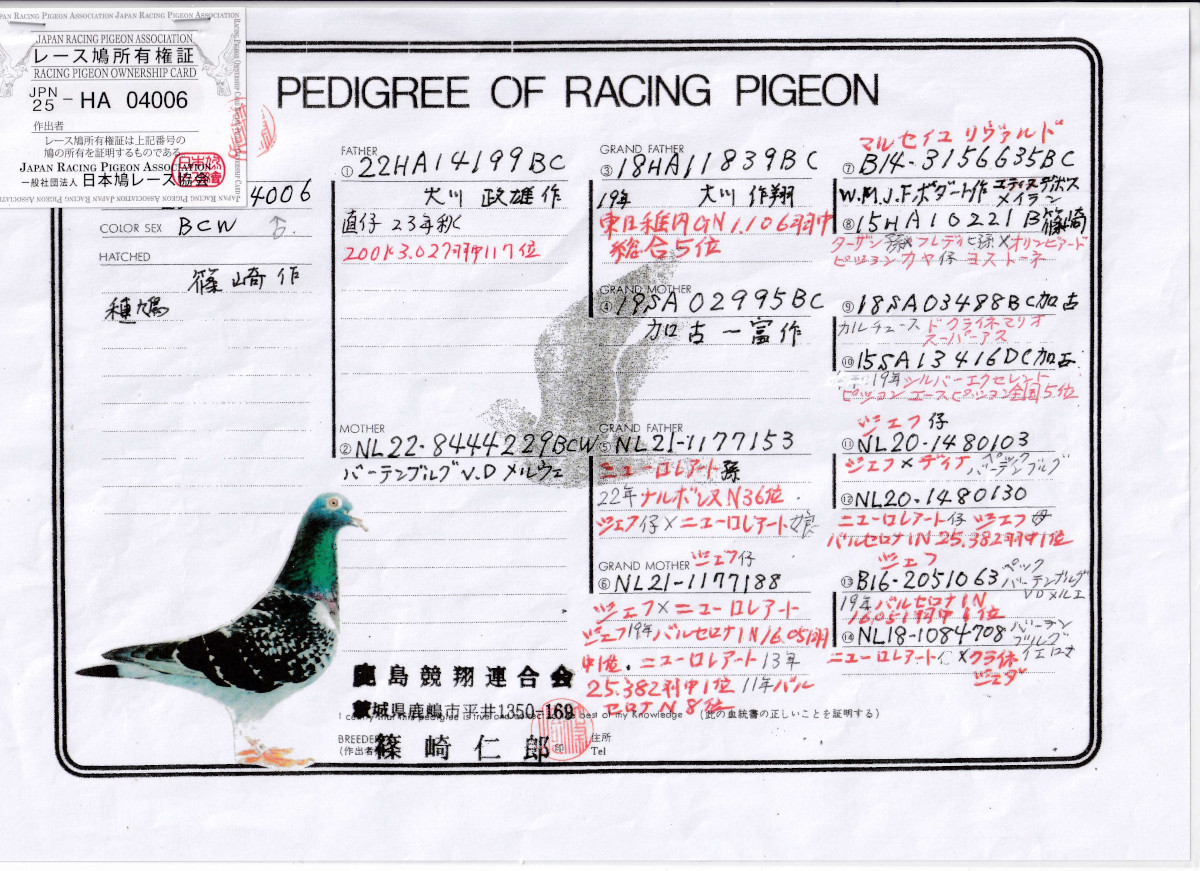 JAPAN RACING PIGEON ASSOCIATION JAPAN RACING PIGEON ASSOCIATION
JAPAN RACING PIGEON ASSOCIATION
レース鳩所有権証
RACING PIGEON OWNERSHIP CARD
JPN
25 - HA 04006
作出者
レース鳩所有権証は上記番号の
鳩の所有を証明するものである。
JAPAN RACING PIGEON ASSOCIATION
一般社団法人 日本鳩レース協会
PEDIGREE OF RACING PIGEON
4006
COLOR SEX BCW ♀.
HATCHED
篠崎作
種鳩
FATHER
① 22HA14199BC
大川 政雄作
直仔 23年秋
200K3.027羽中117位
MOTHER
② NL22-8444229BCW
バーテンブルグV.Dメルウェ
GRAND FATHER
③ 18HA11839BC
19年 大川作翔
東日稚内GN1.106羽中
総合5位
GRAND MOTHER
④ 19SA02995BC
加古一富作
GRAND FATHER
⑤ NL21-1177153
ニューロレアート孫
22年ナルボンヌN36位.
ジェフ仔×ニューロレアート娘
GRAND MOTHER ジェフ仔
⑥ NL21-1177188
ジェフ×ニューロレアート
ジェフ19年バルセロナIN16.051羽
中1位.ニューロレアート13年
25.382羽中1位 11年バル
セロナN8位
マルセイユ リヴァルド
⑦ B14-3156635BC
W.M.J.F.ボダート作
メイラン
⑧ 15HA10221B篠崎
ターザン孫×フレディ孫×オリンピアード
ピッション カヤ仔 ヨストーネ
⑨ 18SA03488BC加古
カルチュース ドクライネマリオ
スーパーアス
⑩ 15SA13416DC加古
19年シルバーエクセレント
ピッションエースピッション全国5位
ジェフ仔
⑪ NL20-1480103
ジェフ×ディナ ペック
バーテンブルグ
⑫ NL20-1480130
ニューロレアート仔 ジェフ母
バルセロナIN25.382羽中1位
ジェフ
⑬ B16-2051063 ペック
バーテンブルグ
VDメルエ
19年バルセロナIN
16.051羽中1位
⑭ NL18-1084708 バーテン
ブルグ
ニューロレアート仔×クライネ
ジェダ
鹿島競翔連合会
茨城県鹿嶋市平井1350-169
I certify that this pedigree is true and correct to the best of my Knowledge (此の血統書の正しいことを証明する)
BREEDER
(作出者
篠崎仁郎
印
住所
Tel